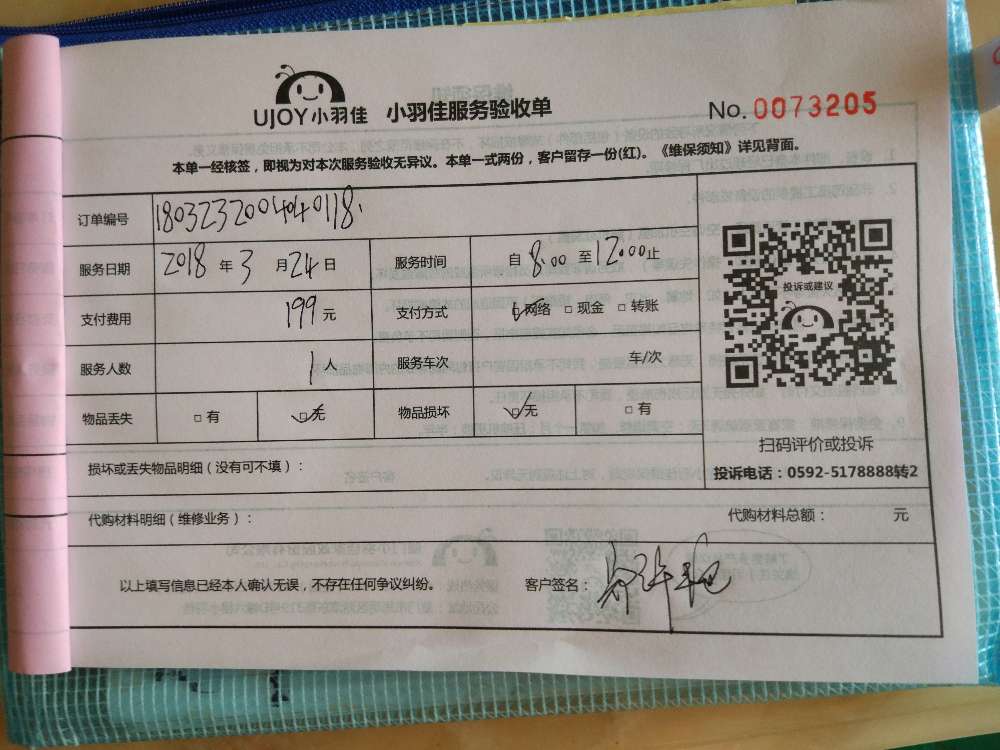 UJOY小羽佳 小羽佳服务验收单 No.0073205
本单一经核签，即视为对本次服务验收无异议。本单一式两份，客户留存一份(红)。《维保须知》详见背面。
订单编号 1803232004040118
服务日期 2018年3月24日 服务时间 自8:00至12:00止
支付费用 199元 支付方式 ☑网络 □现金 □转账
服务人数 1人 服务车次 车/次
物品丢失 □有 ☑无 物品损坏 ☑无 □有
投诉或建议
扫码评价或投诉
投诉电话：0592-5178888转2
损坏或丢失物品明细（没有可不填）：
代购材料明细（维修业务）： 代购材料总额： 元
以上填写信息已经本人确认无误，不存在任何争议纠纷。 客户签名：